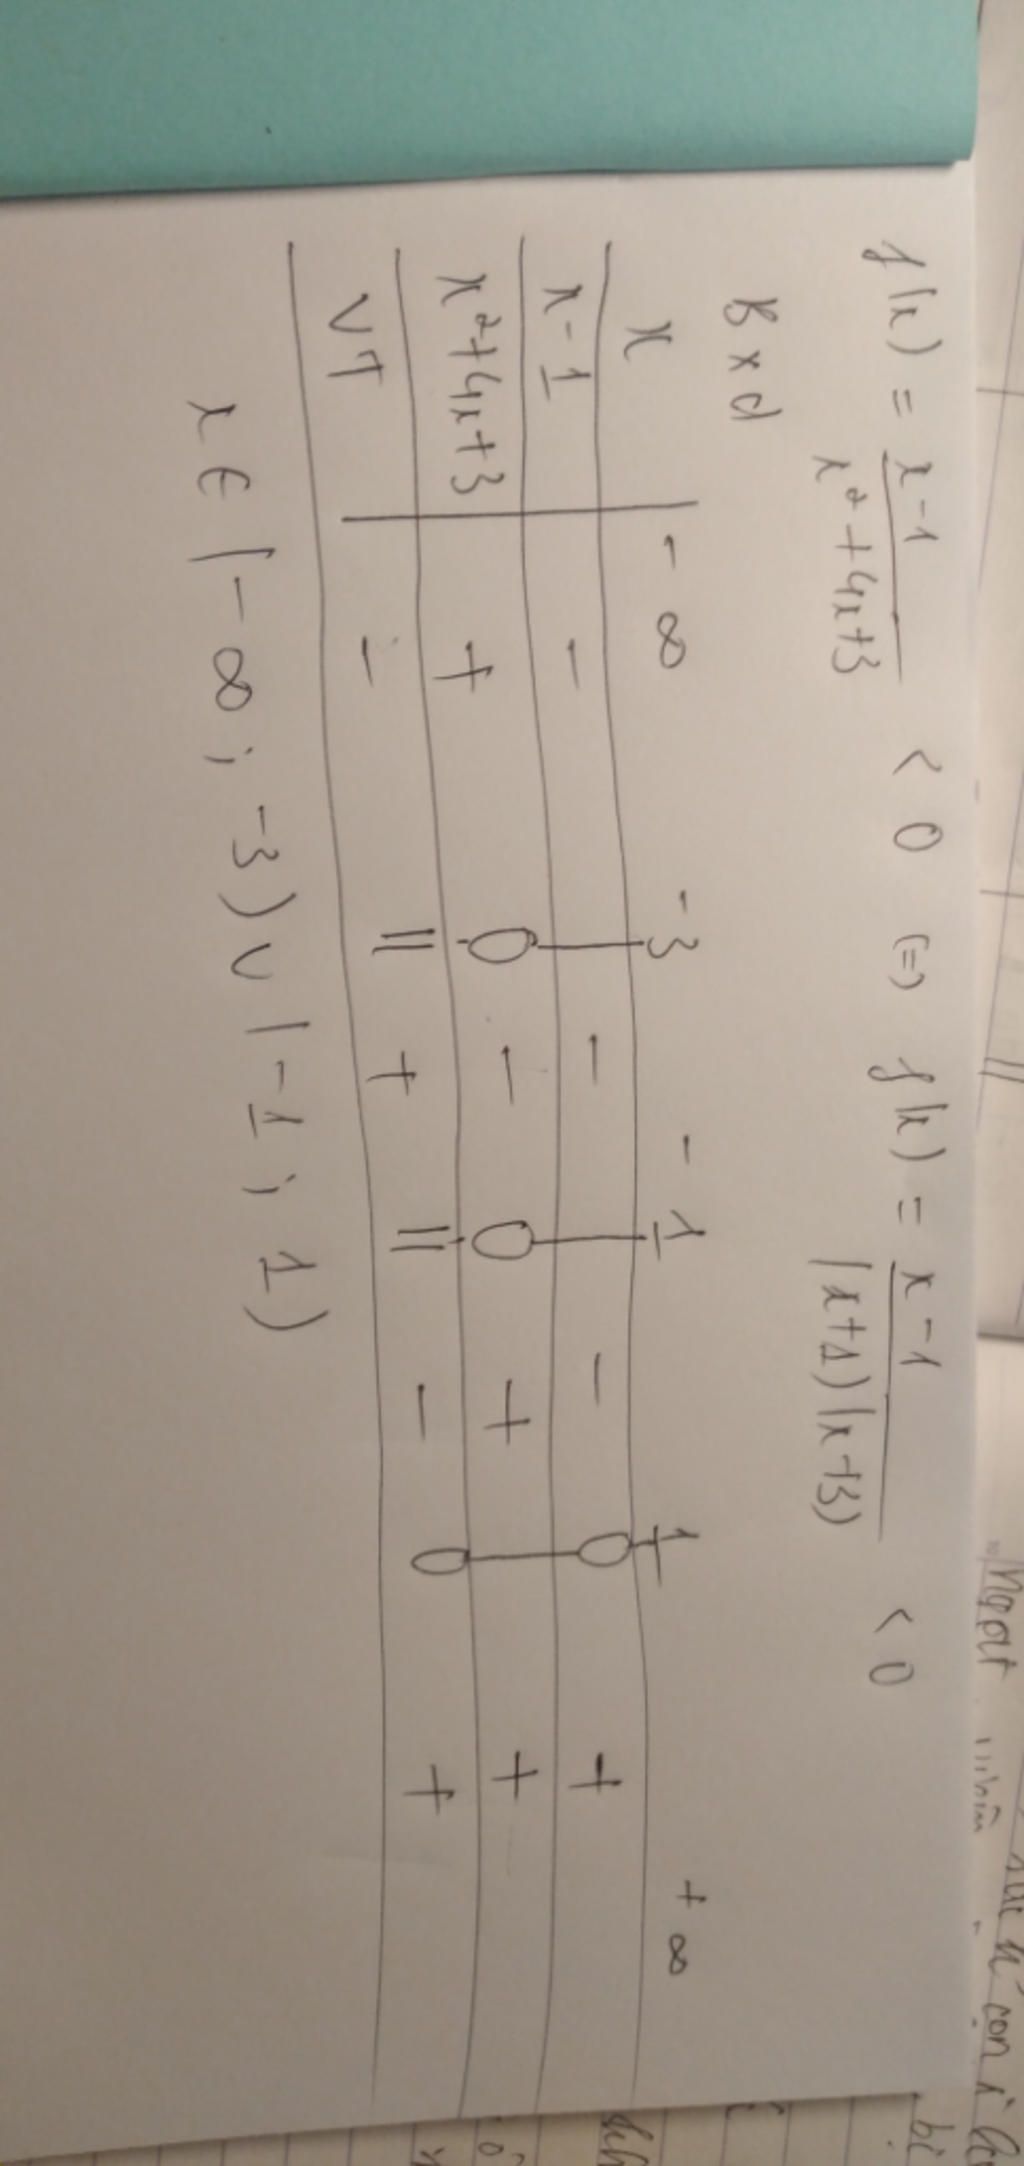 f(x) = x-1 / x²+4x+3 < 0 (=) f(x) = x-1 / (x+1)(x+3) < 0
Bxd
x -∞ -3 -1 1 +∞
x-1 - | - | - 0 +
x²+4x+3 + 0 - 0 + | +
VT - || + || - 0 +
x ∈ (-∞; -3) ∪ (-1; 1)
ngoặt
con
bị